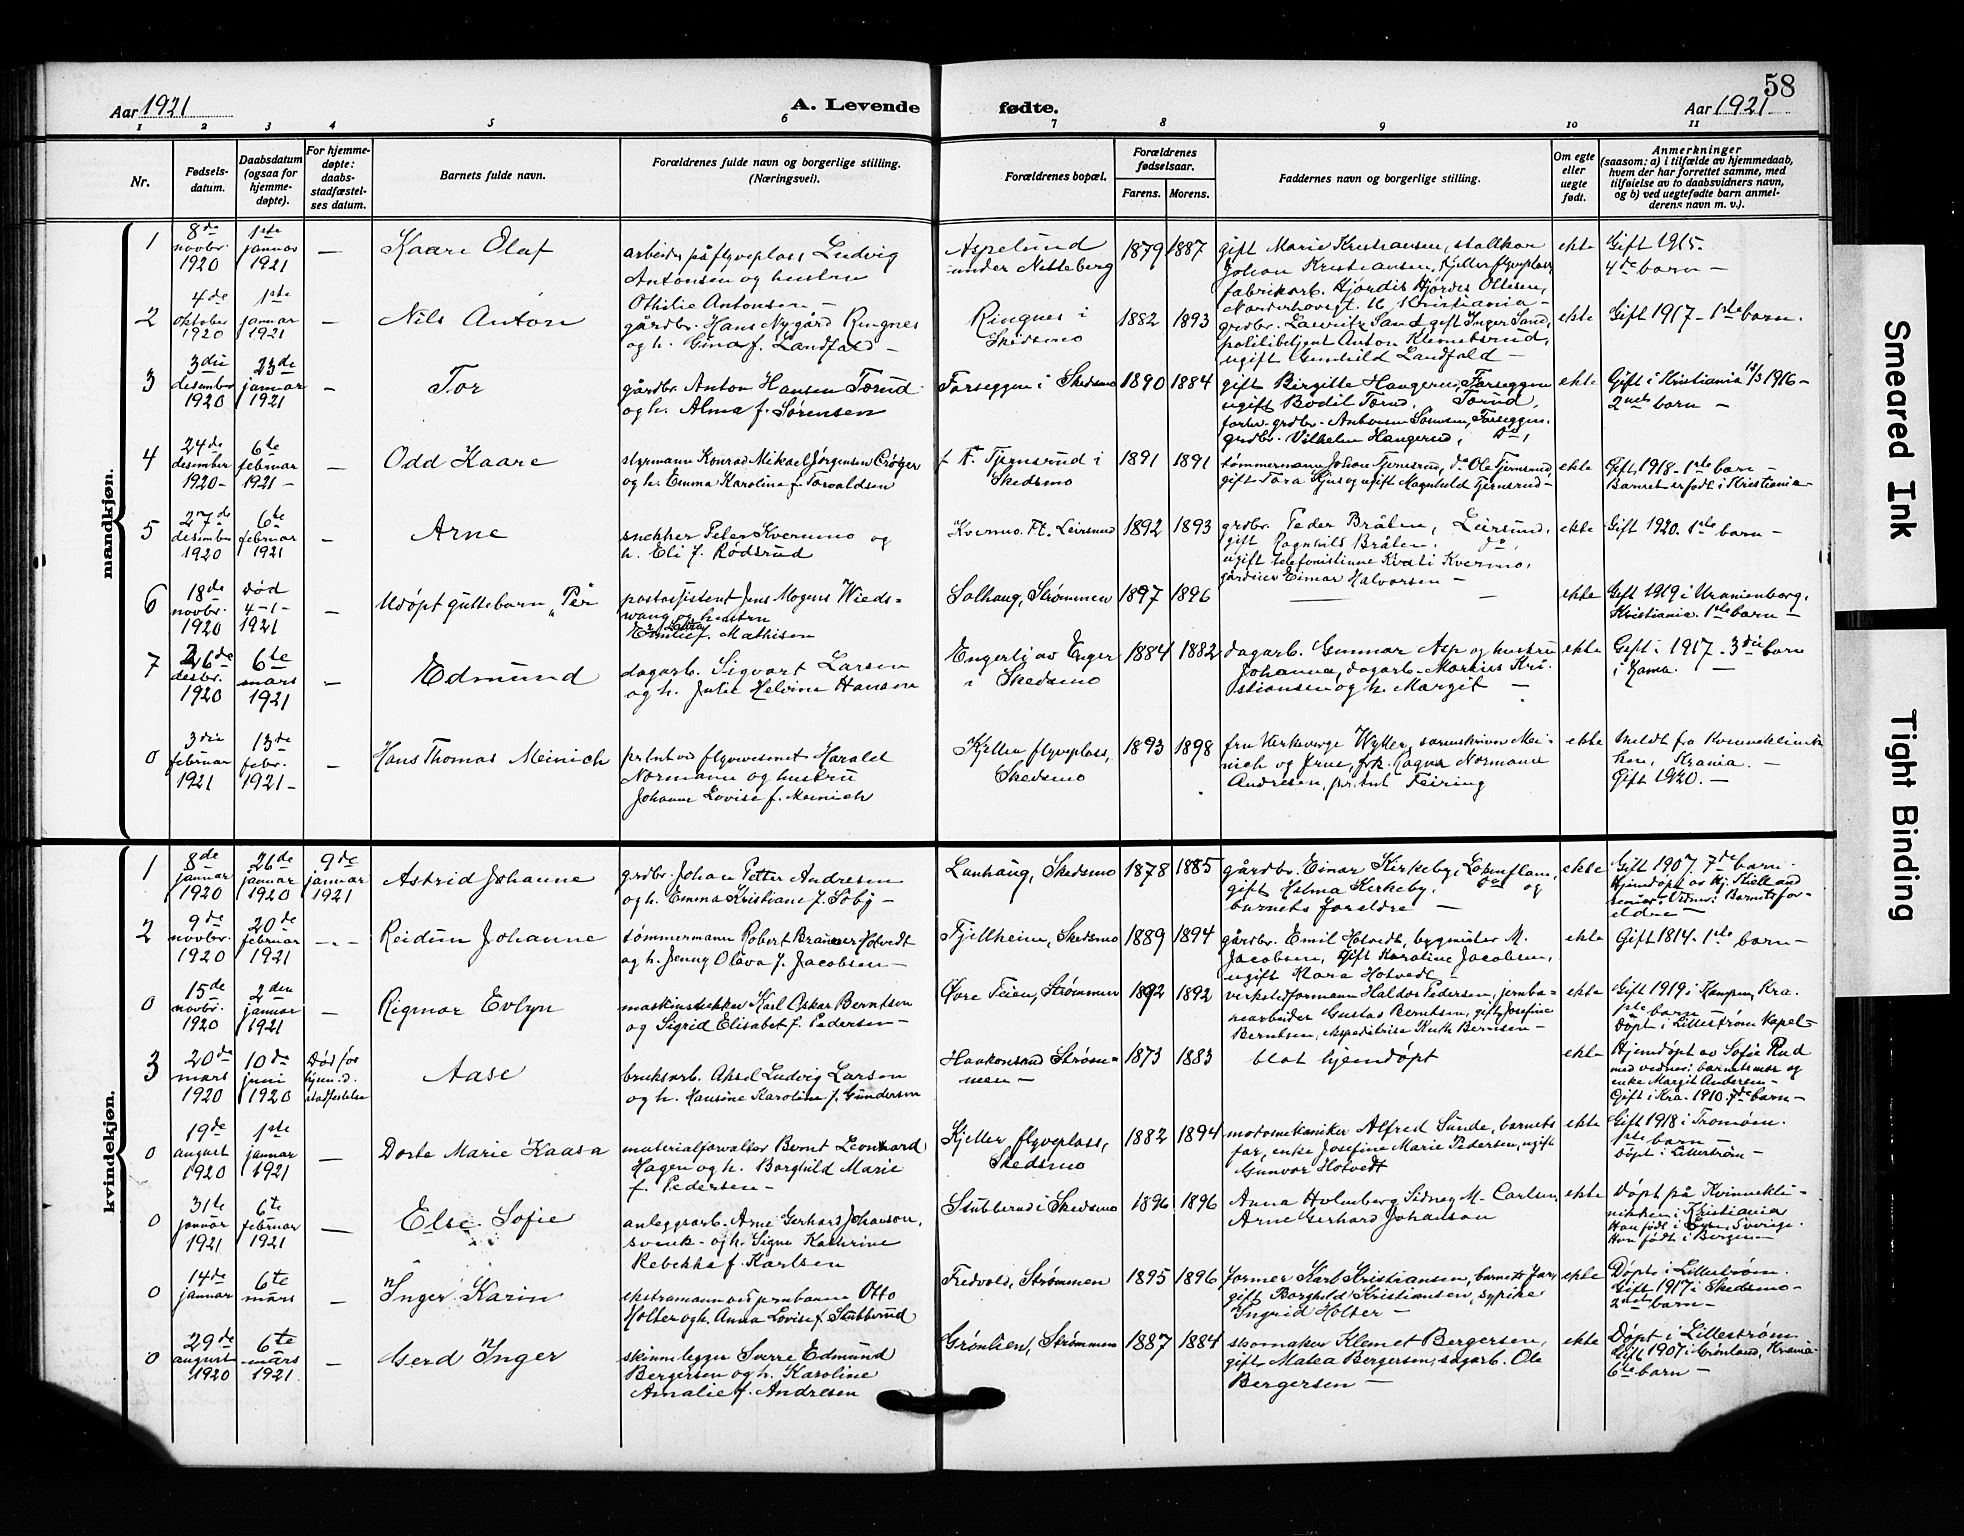 58
Aar 1921 A. Levende fødte. Aar 1921
1 2 3 4 5 6 7 8 9 10 11
Nr.
Fødsels-
datum.
Daabsdatum
(ogsaa for
hjemme-
døpte).
For hjemme-
døpte:
daabs-
stadfæstel-
ses datum.
Barnets fulde navn.
Forældrenes fulde navn og borgerlige stilling.
(Næringsvei).
Forældrenes bopæl.
Forældrenes
fødselsaar.
Farens. Morens.
Faddernes navn og borgerlige stilling.
Om egte
eller
uegte
født.
Anmerkninger
(saasom: a) i tilfælde av hjemmedaab,
hvem der har forrettet samme, med
tilføielse av to daabsvidners navn,
og b) ved uegtefødte barn anmel-
derens navn m. v.).
mandkjøn.
1
8de
novbr.
1920
1ste
januar
1921
—
Kaare Olaf
arbeider på flyveplass Ludvig
Antonsen og hustru
Othilie Antonsen —
Aspelund
under Nitteberg
1879 1887
gift Marie Kristiansen, stallkar
Johan Kristiansen, Kjeller flyveplass
fabrikarb. Hjördis Ottesen,
Kristiania —
ekte
Gift 1915.
4de barn —
2
4de
oktober
1920
1ste
januar
1921
—
Nils Anton
gårdbr. Hans Nygård Ringnes
og h. Gina f. Landfald —
Ringnes i
Skedsmo
1882 1893
grdbr. Lauritz Sand, gift Inger Sand,
politibetjent Anton Klemetsrud,
ugift Gunhild Landfald —
ekte
Gift 1917 – 1ste barn.
3
3die
desember
1920
23de
januar
1921
—
Tor
gårdbr. Anton Hansen Torud
og h. Alma f. Sørensen
Farseggen i Skedsmo
1890 1884
gift Birgitte Haugerud, Farseggen
ugift Bodil Torud, Torud,
forhv. grdbr. Anton Sørensen, Farseggen.
grdbr. Vilhelm Haugerud, do,
ekte
Gift i Kristiania 12/3 1916 –
2net barn —
4
24de
desember
1920 –
6te
februar
1921 –
—
Odd Kaare
styrmann Konrad Mikael Jørgensen Crøger
og h. Emma Karoline f. Torvaldsen
Tjernsrud i
Skedsmo
1891 1891
tømmermann Johan Tjernsrud, do Ole Tjernsrud
gift Tora ugift Magnhild Tjernsrud –
ekte
Gift 1918 – 1ste barn —
Barnet er født i Kristiania –
5
27de
desember
1920
6te
februar
1921
—
Arne
snekker Peter Kvermo og
h. Eli f. Rødsrud
Kvermo. Pt. Leirsund
1892 1893
grdbr. Peder Bråten, Leirsund.
gift Ragnhild Bråten. do,
ugift telefonistinne Kvermo,
gårdeier Einar Halvorsen —
ekte
Gift 1920. 1ste barn —
6
18de
novbr.
1920
død
4–1–
1921
—
Udøpt guttebarn „Per
postassistent Jens Mogens Wieds-
wang og hustru
Emilie f. Mathisen
Solhaug, Strømmen
1897 1896
—
ekte
Gift 1919 i Uranienborg,
Kristiania. 1ste barn —
7
26de
desbr.
1920
6te
mars
1921
—
Edmund
dagarb. Sigvart Larsen
og h. Julie Helvine Hansen
Engerli av Enger
i Skedsmo
1884 1882
dagarb. Gunnar Asp og hustru
Johanna, dagarb. Markus Kri-
stiansen og h. Margit —
ekte
Gift i 1917 – 3die barn
i Krania. —
0
3die
februar
1921
13de
febr.
1921 –
—
Hans Thomas Meinich
prlnt. ved flyvevesenet Harald
Normann og hustru
Johanne Lovise f. Meinich
Kjeller flyveplass,
Skedsmo
1893 1898
fru Kirkeverge Wyller, sorenskriver Mei-
nich og frue, frk. Ragna Normann
Andresen, pr. lnt. Feiring
ekte
Meldt fra Kvinneklinik-
ken, Krania. —
Gift 1920. —
kvindekjøn.
1
8de
januar
1920
26de
januar
1920
9de
januar
1921
Astrid Johanne
grdbr. Johan Petter Andresen
og h. Emma Kristiane f. Søby —
Lanhaug, Skedsmo
1878 1885
gårdbr. Einar Kirkeby,
gift Helma Kirkeby. do og
barnets foreldre —
ekte
Gift 1907. 7de barn –
Hjemdøpt av Hj. Kielland
senior. Vidner: Barnets for-
eldre —
2
9de
novbr.
1920
20de
februar
1921
– – –
Reidun Johanne
tømmermann Robert Hotvedt
og h. Jenny Olava f. Jacobsen —
Fjellheim, Skedsmo
1889 1894
gårdbr. Emil Hotvedt, bygmester M.
Jacobsen, gift Karoline Jacobsen,
ugift Klara Hotvedt —
ekte
Gift 1814. 1ste barn –
0
15de
novbr.
1920
2den
januar
1921
—
Rigmor Evlyn
maskinstikker Karl Oskar Berntsen
og Sigrid Elisabet f. Pedersen —
Øvre Teien, Strømmen
1892 1892
virkstedformann Haldor Pedersen, jernba-
nearbeider Gustav Berntsen, gift Josefine
Berntsen, ekspeditrise Ruth Berntsen —
ekte
Gift 1919 i Kampen, Kra.
1ste barn —
Døpt i Lillestrøm Kapel –
3
20de
mars
1920
10de
juni
1920
Død før
hjem.d.
stadfestelse
Aase
bruksarb. Aksel Ludvig Larsen
og h. Hansine Karoline f. Gundersen
Haakonsrud Strøm-
men —
1873 1883
blot hjemdøpt
ekte
Hjemdøpt av Sofie Rud
med vidner: barnets mor og
enke Margit Andersen –
Gift i Kra. 1910. 7de barn —
0
19de
august
1920
1ste
januar
1921
—
Dorte Marie Kaasa
materialforvalter Bernt Leonhard
Hagen og h. Borghild Marie
f. Pedersen —
Kjeller flyveplass,
Skedsmo
1882 1894
motormekaniker Alfred Sunde, barnets
far, enke Josefine Marie Pedersen, ugift
Gunvor Hotvedt
ekte
Gift 1918 i Tromøen.
1ste barn —
Døpt i Lillestrøm —
0
31te
januar
1921
6te
februar
1921
—
Else Sofie
anleggsarb. Arne Gerhard Johanson,
svensk – og h. Signe Kathrine
Rebekka f. Karlsen
Stubberud i Skedsmo
1896 1896
Anna Holmberg Sidney M. Carlsen,
Arne Gerhard Johanson
ekte
Døpt på Kvinnekli-
nikken i Kristiania
Han født i Sverige.
Hun født i Bergen —
0
14de
januar
6te
mars
—
Inger Karin
ekstramann ved jernbanen Otto
Holter og h. Anna Lovise f. Stubberud
Fredvold, Strømmen
1895 1896
former Karl Kristiansen, barnets far,
gift Borghild Kristiansen, sypike
Ingrid Holter —
ekte
Døpt i Lillestrøm.
Gift 1917 i Skedsmo –
2net barn —
0
29de
august
1920
6te
mars
1921.
—
Gerd Inger
skinnelegger Sverre Edmund
Bergersen og h. Karoline
Amalie f. Andresen
Grønlien, Strømmen
1887 1884
skomaker Klemet Bergersen,
gift Matea Bergersen, sagarb. Ole
Bergersen —
ekte
Døpt i Lillestrøm
Gift 1907 i Grønland, Krania
6te barn —
Smeared Ink
Tight Binding